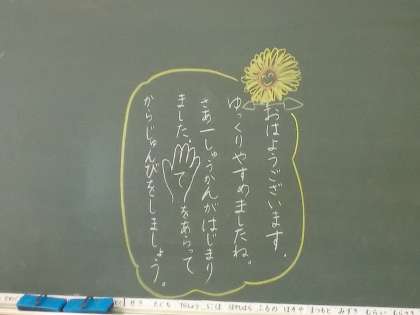 おはようございます。
ゆっくりやすめましたね。
さあ一しゅうかんがはじまり
ました。てをあらって
からじゅんびをしましょう。